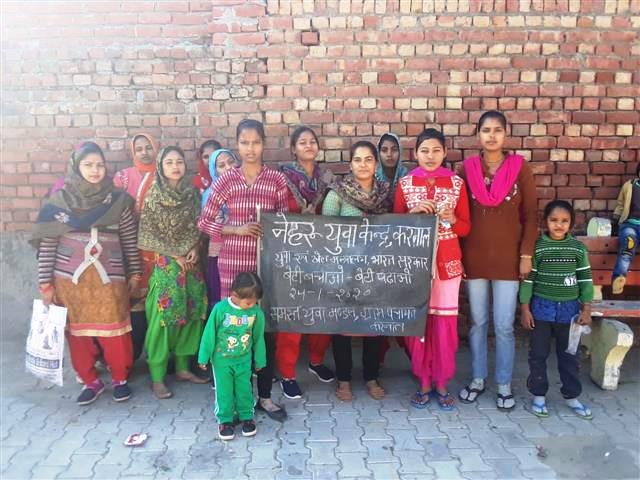 नेहरू युवा केन्द्र, करनाल
युवा एवं खेल मन्त्रालय, भारत सरकार
बेटी बचाओ - बेटी पढ़ाओ
24-1-2020
समस्त युवा मण्डल, ग्राम पंचायत
करनाल